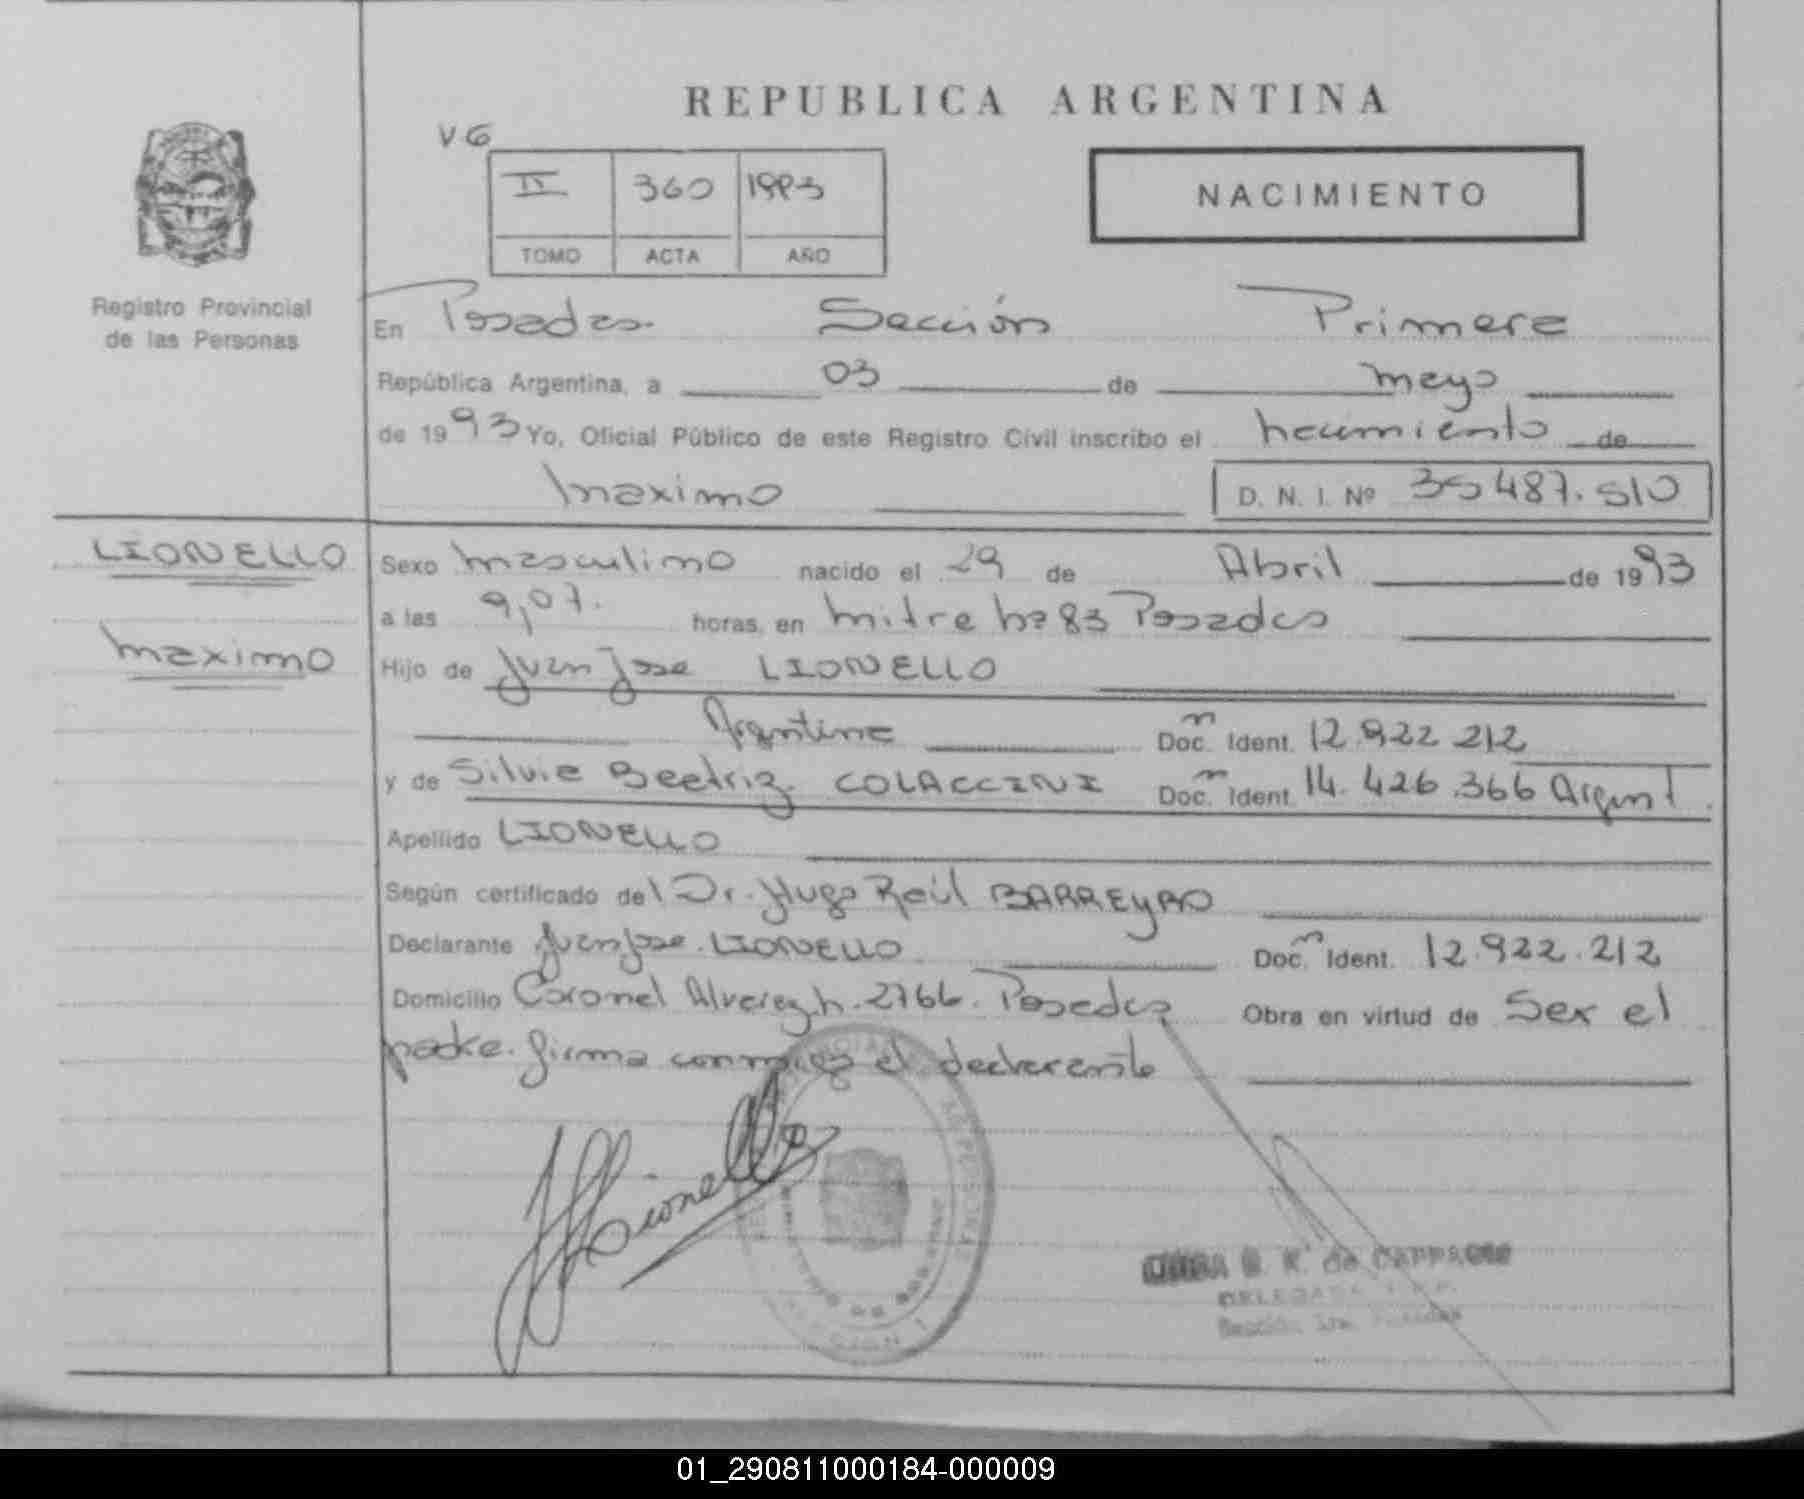 REPUBLICA ARGENTINA
V6
II 360 1993
TOMO ACTA AÑO
NACIMIENTO
Registro Provincial
de las Personas
En Posadas Sección Primera
República Argentina, a 03 de mayo
de 1993 Yo, Oficial Público de este Registro Civil inscribo el nacimiento de
Maximo D. N. I. Nº 35487.510
LIONELLO
Maximo
Sexo masculino nacido el 29 de Abril de 1993
a las 9,07. horas, en Mitre nº 83 Posadas
Hijo de Juan Jose LIONELLO
Argentina Doc. n Ident. 12.922.212
y de Silvia Beatriz COLACCINI Doc. n Ident. 14.426.366 Argent.
Apellido LIONELLO
Según certificado del Dr. Hugo Raúl BARREYRO
Declarante Juan Jose LIONELLO Doc. n Ident. 12.922.212
Domicilio Coronel Alvarez n. 2766. Posadas Obra en virtud de Ser el
padre. firma conmigo el declarante
JJLionello
SECCION 1
de
DELEGADA
Sección 1ra. Posadas
01_290811000184-000009